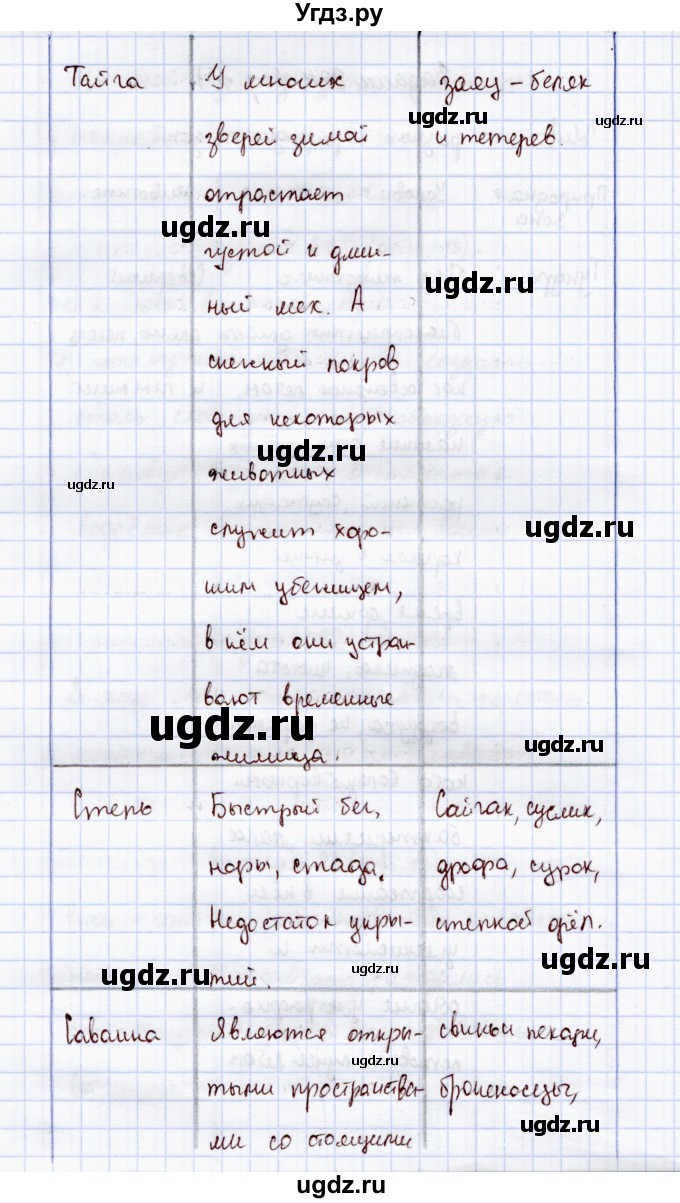 Угдз.ру
Тайга У многих заяц - беляк
зверей зимой и тетерев.
отрастает
густой и длин-
ный мех. А
снежный покров
для некоторых
животных
служит хоро-
шим убежищем,
в нём они устраи-
вают временные
жилища.
Степь Быстрый бег, Сайгак, суслик,
норы, стада. дрофа, сурок,
Недостаток укры- степной орёл.
тий.
Саванна Являются откры- свиньи пекари,
тыми пространства- броненосцы,
ми со стоящими
ugdz.ru
ugdz.ru
ugdz.ru
ugdz.ru
ugdz.ru
ugdz.ru
ugdz.ru
ugdz.ru
ugdz.ru
ugdz.ru
ugdz.ru
ugdz.ru
ugdz.ru
ugdz.ru